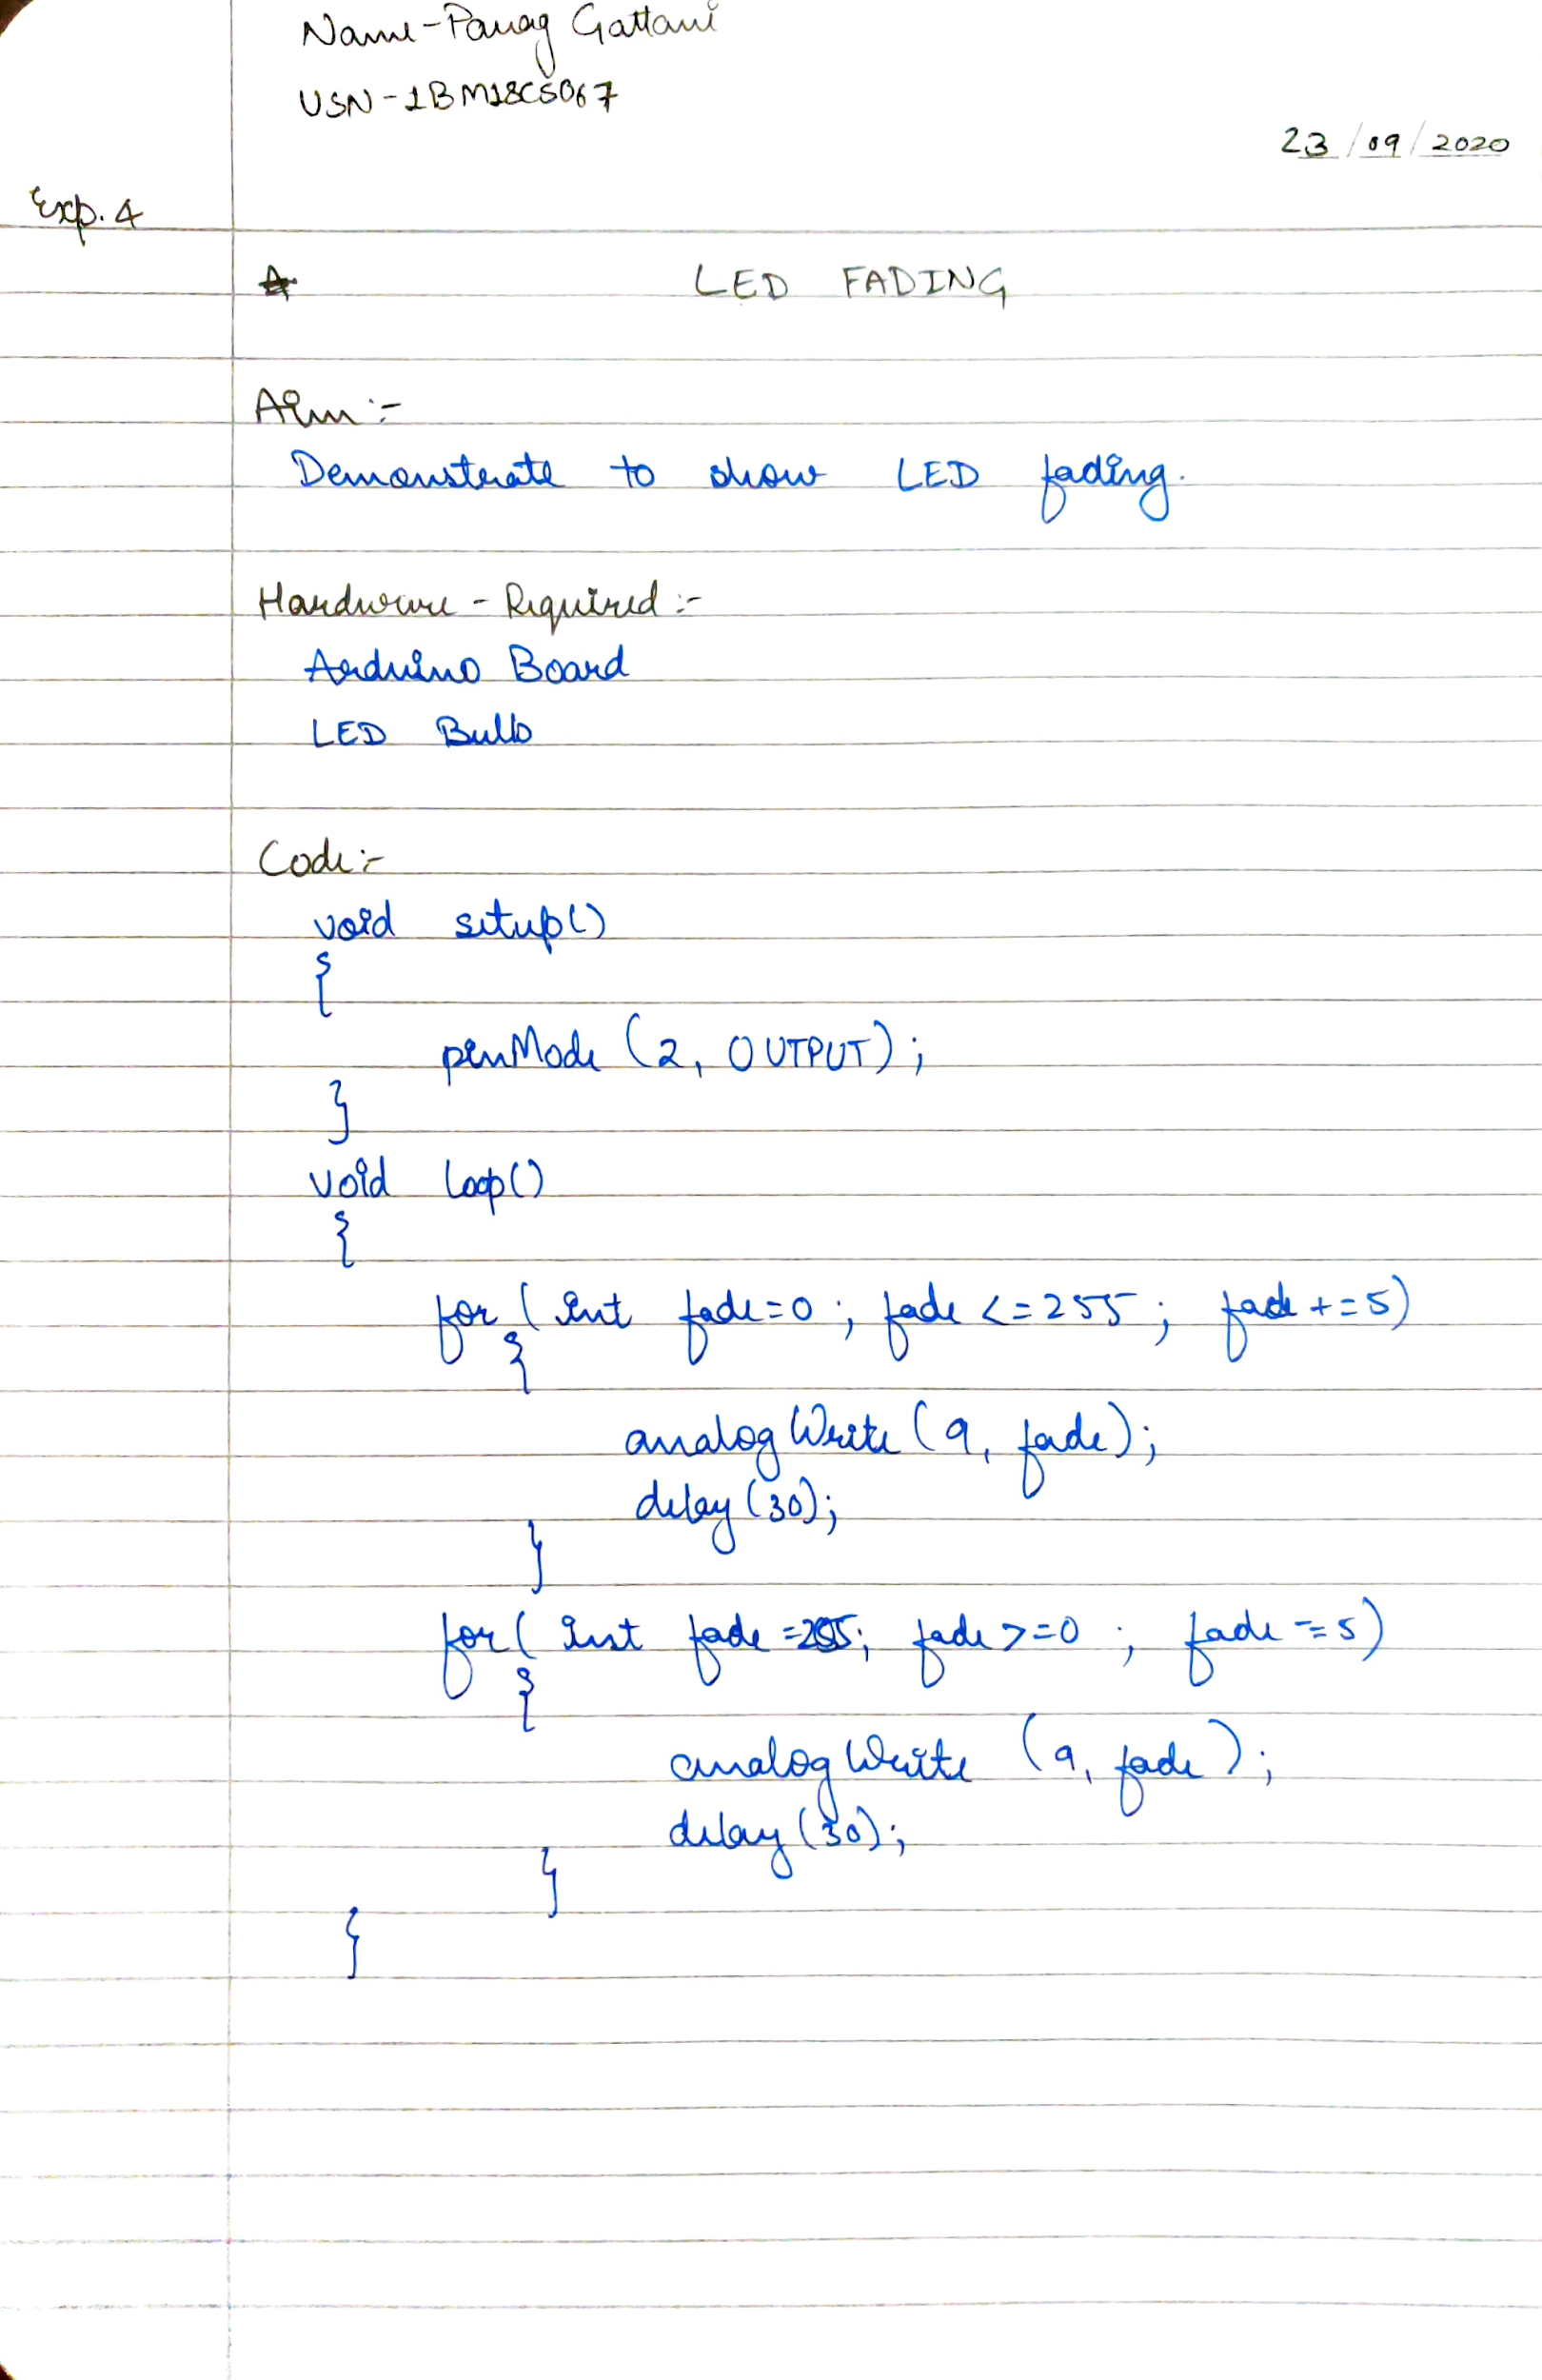 Name-Parag Gattani
USN-1BM18CS067
23/09/2020
Exp. 4
LED FADING
Aim:-
Demonstrate to show LED fading.
Hardware-Required:-
Arduino Board
LED Bulb
Code:-
void setup()
{
pinMode (2, OUTPUT);
}
void loop()
{
for ( int fade=0; fade <=255; fade +=5)
{
analogWrite (9, fade);
delay (30);
}
for ( int fade =255; fade >=0 ; fade -=5)
{
analogWrite (9, fade);
delay (30);
}
}